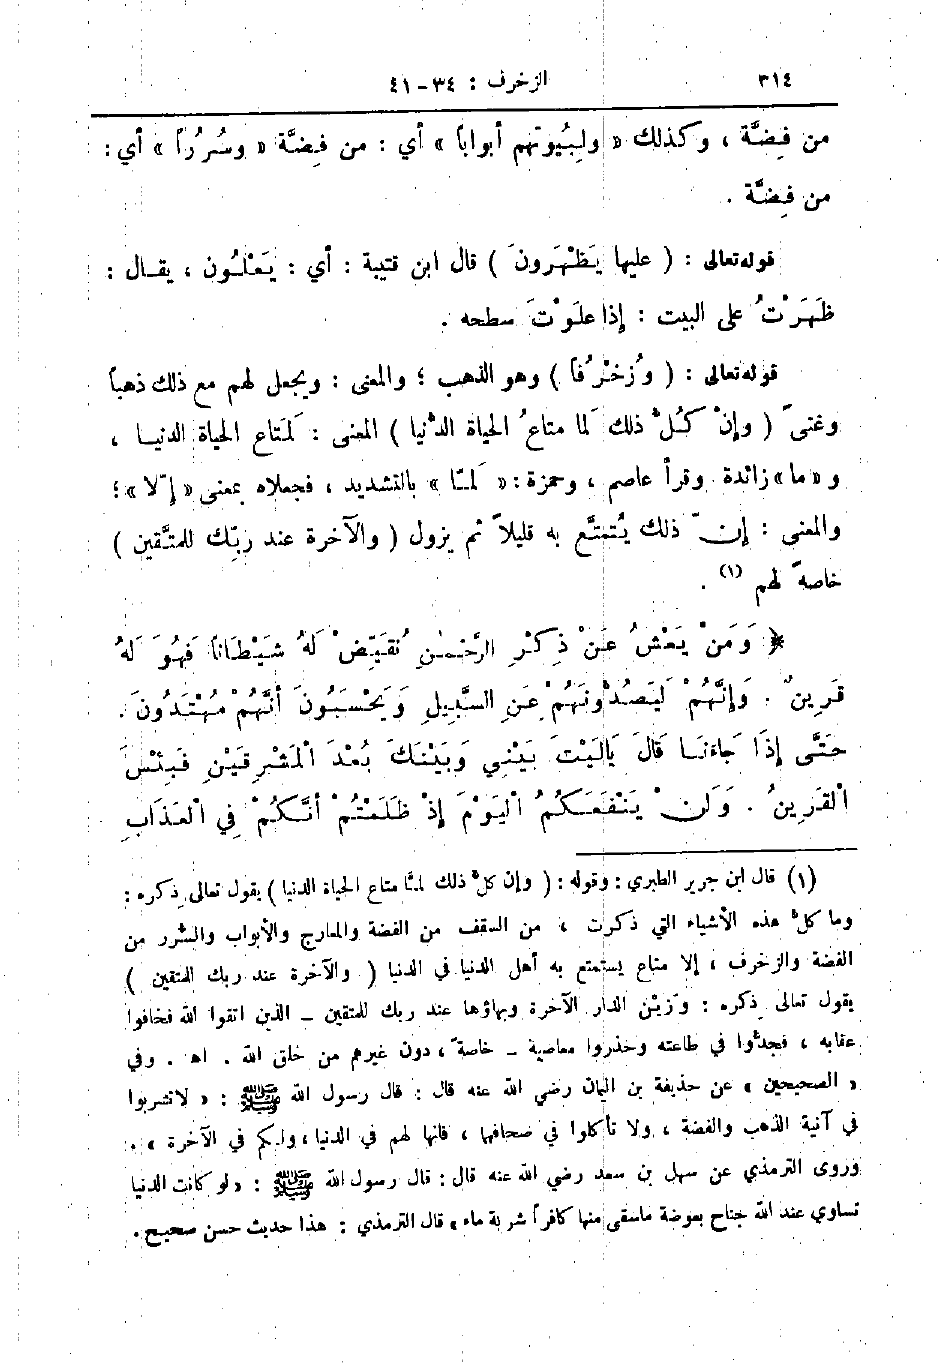 ٣١٤ الزخرف : ٣٤-٤١
من فِضَّة ، وكذلك « ولِبُيوتهم أبواباً » أي : من فِضَّة « وسُرُراً » أي :
من فِضَّة .
قوله تعالى : ( عليها يَظْهَرونَ ) قال ابن قتيبة : أي : يَعْلُون ، يقال :
ظَهَرْتُ على البيت : إذا علَوْتَ سطحه .
قوله تعالى : ( وُزخْرُفاً ) وهو الذهب ؛ والمعنى : ويجعل لهم مع ذلك ذهباً
وغنىً ( وإنْ كُلُّ ذلك لَما متاعُ الحياة الدُّنيا ) المعنى : لَمَتاع الحياة الدنيا ،
و «ما» زائدة وقرأ عاصم ، وحمزة : « لَمّا » بالتشديد ، فجعلاه بمعنى « إلّا » ؛
والمعنى : إنّ ذلك يُتمتَّع به قليلاً ثم يزول ( والآخرة عند ربِّك للمتَّقين )
خاصةً لهم (١) .
﴿ وَمَنْ يَعْشُ عَنْ ذِكْرِ الرَّحْمٰنِ نُقَيِّضْ لَهُ شَيْطَاناً فَهُوَ لَهُ
قَرِينٌ . وَإِنَّهُمْ لَيَصُدُّونَهُمْ عَنِ السَّبِيلِ وَيَحْسَبُونَ أَنَّهُمْ مُهْتَدُونَ .
حَتَّى إِذَا جَاءَنَا قَالَ يَالَيْتَ بَيْنِي وَبَيْنَكَ بُعْدَ الْمَشْرِقَيْنِ فَبِئْسَ
الْقَرِينُ . وَلَنْ يَنْفَعَكُمُ الْيَوْمَ إِذْ ظَلَمْتُمْ أَنَّكُمْ فِي الْعَذَابِ
(١) قال ابن جرير الطبري : وقوله : ( وإن كلُّ ذلك لمّا متاع الحياة الدنيا ) يقول تعالى ذكره :
وما كلُّ هذه الأشياء التي ذكرت ، من السقف من الفضة والمعارج والأبواب والسُّرر من
الفضة والزخرف ، إلا متاع يستمتع به أهل الدنيا في الدنيا ( والآخرة عند ربك للمتقين )
يقول تعالى ذكره : وَزَيْن الدار الآخرة وبهاؤها عند ربك للمتقين – الذين اتقوا الله فخافوا
عقابه ، فجدُّوا في طاعته وحذروا معاصية – خاصةً ، دون غيرهم من خلق الله . اهـ . وفي
« الصحيحين » عن حذيفة بن اليمان رضي الله عنه قال : قال رسول الله ﷺ : « لا تشربوا
في آنية الذهب والفضة ، ولا تأكلوا في صحافها ، فانها لهم في الدنيا ، ولكم في الآخرة » .
وروى الترمذي عن سهل بن سعد رضي الله عنه قال : قال رسول الله ﷺ : « لو كانت الدنيا
تساوي عند الله جناح بعوضة ماسقى منها كافراً شربة ماء » قال الترمذي : هذا حديث حسن صحيح .